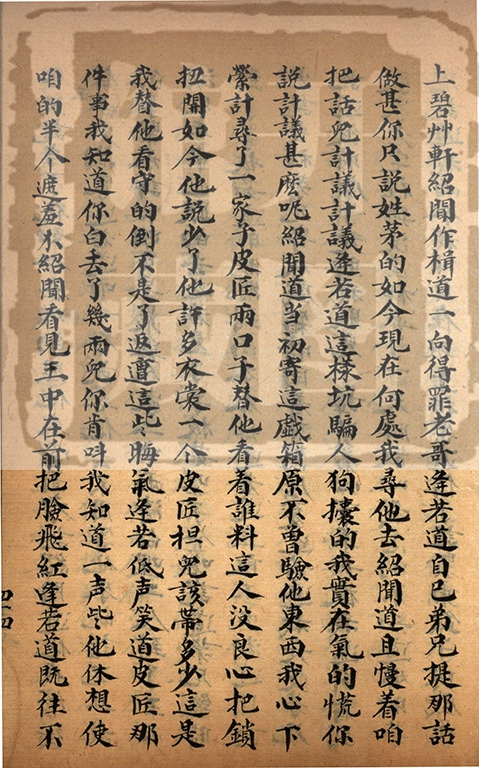 上碧艸軒紹聞作楫道一向得罪老哥逢若道自己弟兄提那話
做甚你只說姓茅的如今現在何處我尋他去紹聞道且慢着咱
把話兒計議計議逢若道這樣坑騙人狗攮的我實在氣的慌你
說計議甚麽呢紹聞道当初寄這戲箱原不曽驗他東西我心下
縈計尋了一家子皮匠兩口子替他看着誰料這人没良心把鎖
扭開如今他説少了他許多衣裳一个皮匠担兒該帶多少這是
我替他看守的倒不是了返遭這些晦氣逢若低声笑道皮匠那
件事我知道你白去了幾兩兒你肯呌我知道一声些他休想使
咱的半个遮羞木紹聞看見王中在前把臉飛紅逢若道既往不
四十四